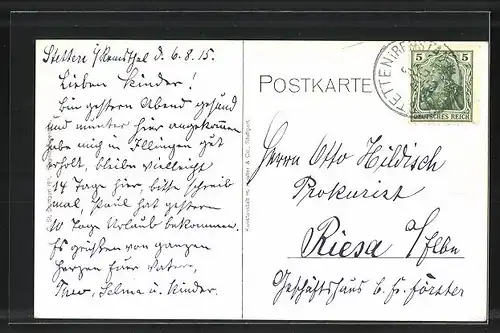 Stetten i/Remsthal d. 6.8.15.
Lieben Kinder!
Bin gestern Abend gesund
und munter hier angekommen
habe mich in Illingen gut
erholt, bleibe vielleicht
14 Tage hier, bitte schreib
mal, Paul hat gestern
10 Tage Urlaub bekommen.
Es grüßen von ganzen
Herzen Euer Vater,
Theo, Selma u. Kinder.
POSTKARTE
5 5
DEUTSCHES REICH
STETTEN (REMSTAL)
Herrn Otto Hildisch
Prokurist
Riesa a/Elbe
Geschäftshaus C. F. Förster